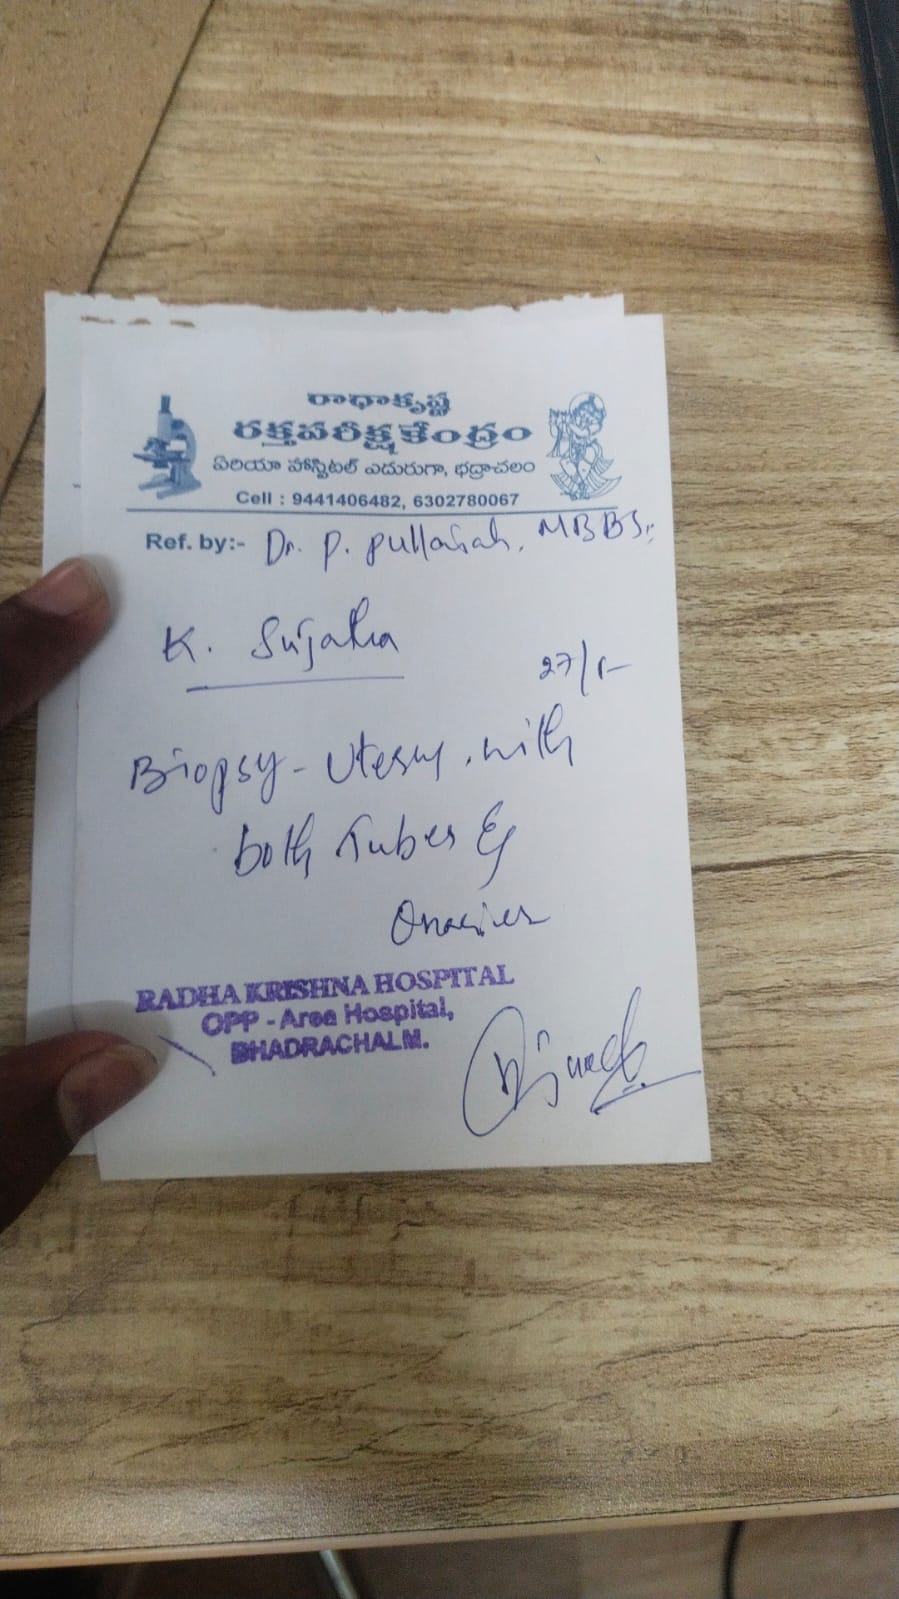 రాధాకృష్ణ
రక్తపరీక్ష కేంద్రం
ఏరియా హాస్పిటల్ ఎదురుగా, భద్రాచలం
Cell : 9441406482, 6302780067
Ref. by:- Dr. P. Pullaiah, MBBS.,
K. Sujatha
27/
Biopsy - Uterus, with
both Tubes &
Ovaries
RADHA KRISHNA HOSPITAL
OPP - Area Hospital,
BHADRACHALM.